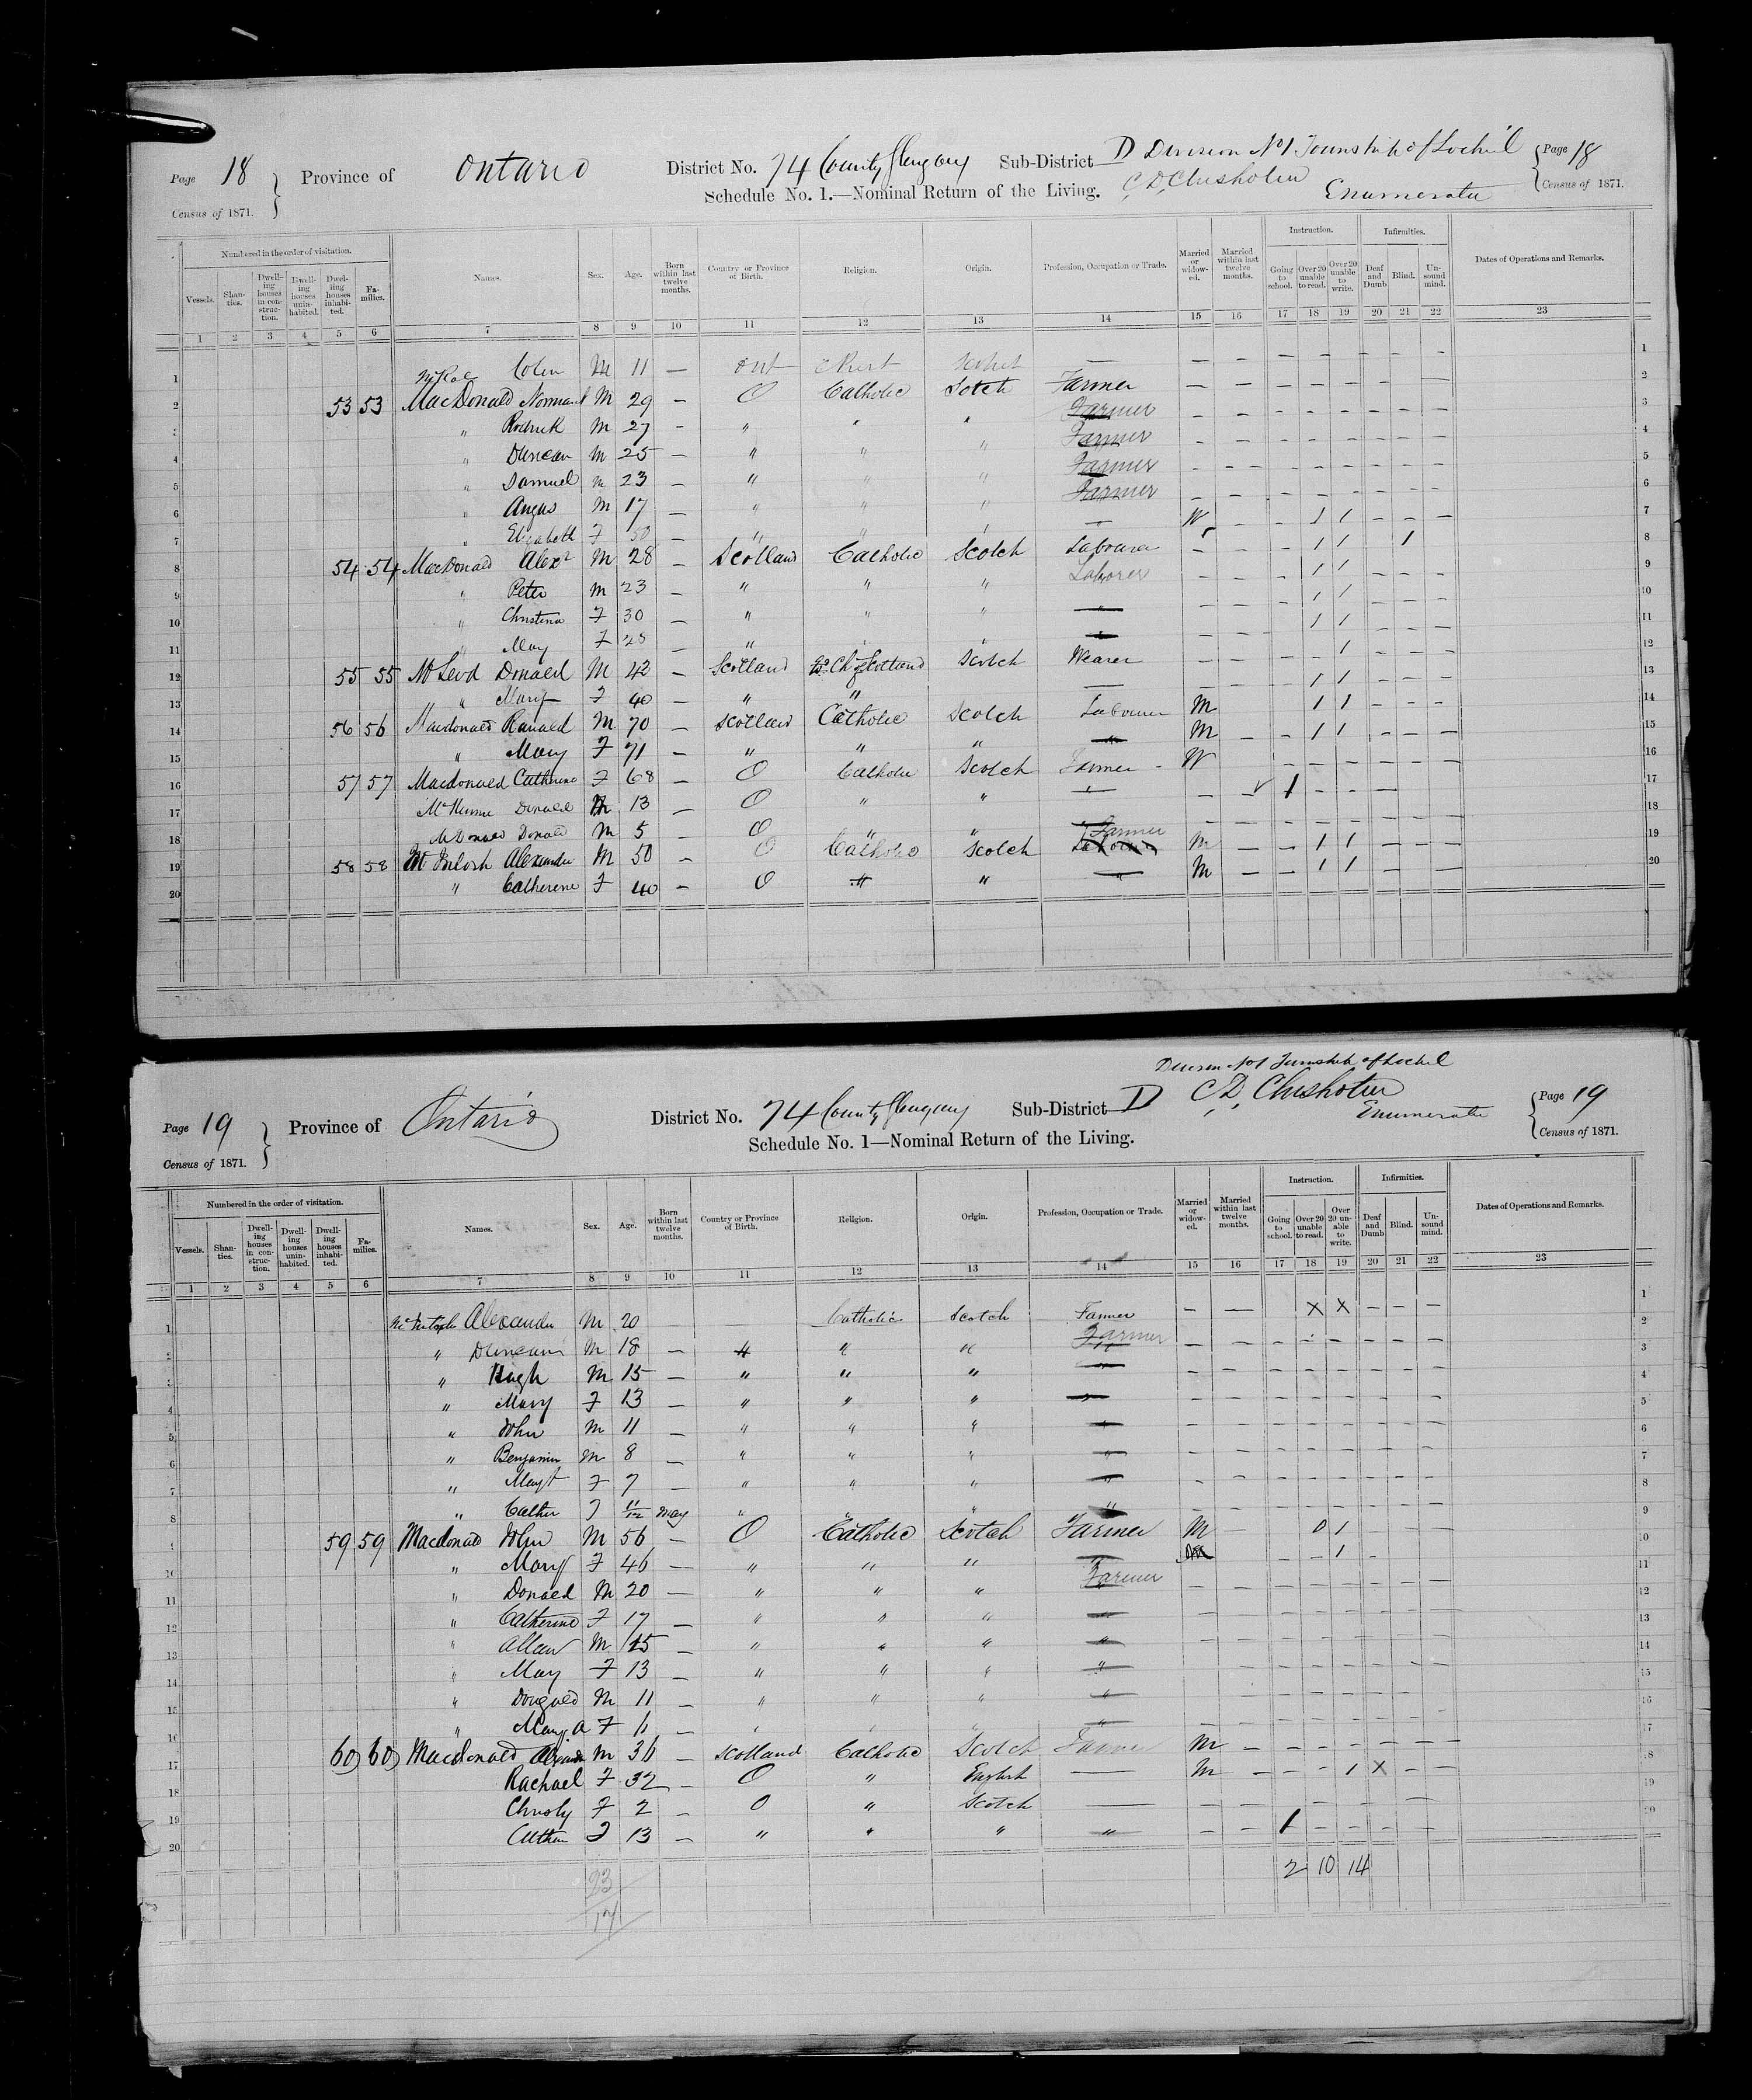 Page 18 Province of Ontario District No. 74 County Glengary Sub-District D Division No 1 Township of Lochiel Page 18
Census of 1871. Schedule No. 1.—Nominal Return of the Living. C. D. Chisholm Enumerator Census of 1871.
Numbered in the order of visitation. Names. Sex. Age. Born within last twelve months. Country or Province of Birth. Religion. Origin. Profession, Occupation or Trade. Married or widowed. Married within last twelve months. Instruction. Infirmities. Dates of Operations and Remarks.
Vessels. Shanties. Dwelling houses in construction. Dwelling houses uninhabited. Dwelling houses inhabited. Families. Going to school. Over 20 unable to read. Over 20 unable to write. Deaf and Dumb Blind. Unsound mind.
1 2 3 4 5 6 7 8 9 10 11 12 13 14 15 16 17 18 19 20 21 22 23
1 McRae Colin M 11 — Ont Scotch — 1
2 53 53 MacDonald Norman M 29 — O Catholic Scotch Farmer 2
3 " Rodrick M 27 - " " " Farmer 3
4 " Duncan M 25 — " " " Farmer 4
5 " Samuel M 23 — " " " Farmer 5
6 " Angus M 17 — " " " Farmer 6
7 " Elizabeth F 50 — " " " — W 1 1 7
8 54 54 MacDonald Alexr M 28 — Scotland Catholic Scotch Labourer 1 1 1 8
9 " Peter M 23 — " " " Laborer 1 1 9
10 " Christena F 30 — " " " 1 1 10
11 " May F 25 — " " " 1 1 11
12 55 55 McLeod Donald M 42 — Scotland Ch of Scotland Scotch Weaver 1 12
13 " Mary F 40 — " " — 1 1 13
14 56 56 Macdonald Ranald M 70 — Scotland Catholic Scotch Labourer M 1 1 14
15 " Mary F 71 — " " " M 1 1 15
16 57 57 Macdonald Catherine F 68 — O Catholic Scotch Farmer W 16
17 Donald M 13 — O " " 1 17
18 McDonald Donald M 5 — O " " 18
19 58 58 McIntosh Alexander M 50 — O Catholic Scotch Farmer M 1 1 19
20 " Catherene F 40 — O " " " M 1 1 20
Division No 1 Township of Lochiel
Page 19 Province of Ontario District No. 74 County Glengary Sub-District D C. D. Chisholm Enumerator Page 19
Census of 1871. Schedule No. 1—Nominal Return of the Living. Census of 1871.
Numbered in the order of visitation. Names. Sex. Age. Born within last twelve months. Country or Province of Birth. Religion. Origin. Profession, Occupation or Trade. Married or widowed. Married within last twelve months. Instruction. Infirmities. Dates of Operations and Remarks.
Vessels. Shanties. Dwelling houses in construction. Dwelling houses uninhabited. Dwelling houses inhabited. Families. Going to school. Over 20 unable to read. Over 20 unable to write. Deaf and Dumb Blind. Unsound mind.
1 2 3 4 5 6 7 8 9 10 11 12 13 14 15 16 17 18 19 20 21 22 23
1 McIntosh Alexander M 20 — Catholic Scotch Farmer — — X X — — — 1
2 " Duncan M 18 — " " " Farmer 2
3 " Hugh M 15 — " " " " 3
4 " Mary F 13 — " " " " 4
5 " John M 11 — " " " " 5
6 " Benjamin M 8 — " " " " 6
7 " Margt F 7 — " " " " 7
8 " Cather F 11/12 May " " " 8
9 59 59 Macdonald John M 56 — O Catholic Scotch Farmer M 0 1 9
10 " Mary F 46 — " " " " 1 10
11 " Donald M 20 — " " " Farmer 11
12 " Catherine F 17 — " " " " 12
13 " Allan M 15 — " " " " 13
14 " May F 13 — " " " " 14
15 " Dougald M 11 — " " " " 15
16 " Mary A F 6 — " " " " 16
17 60 60 Macdonald M 36 — Scotland Catholic Scotch Farmer M 17
18 Rachael F 32 — O " English — M 1 X 18
19 Christy F 2 — O " Scotch — 19
20 F 13 — " " " " 1 20
23 2 10 14
17